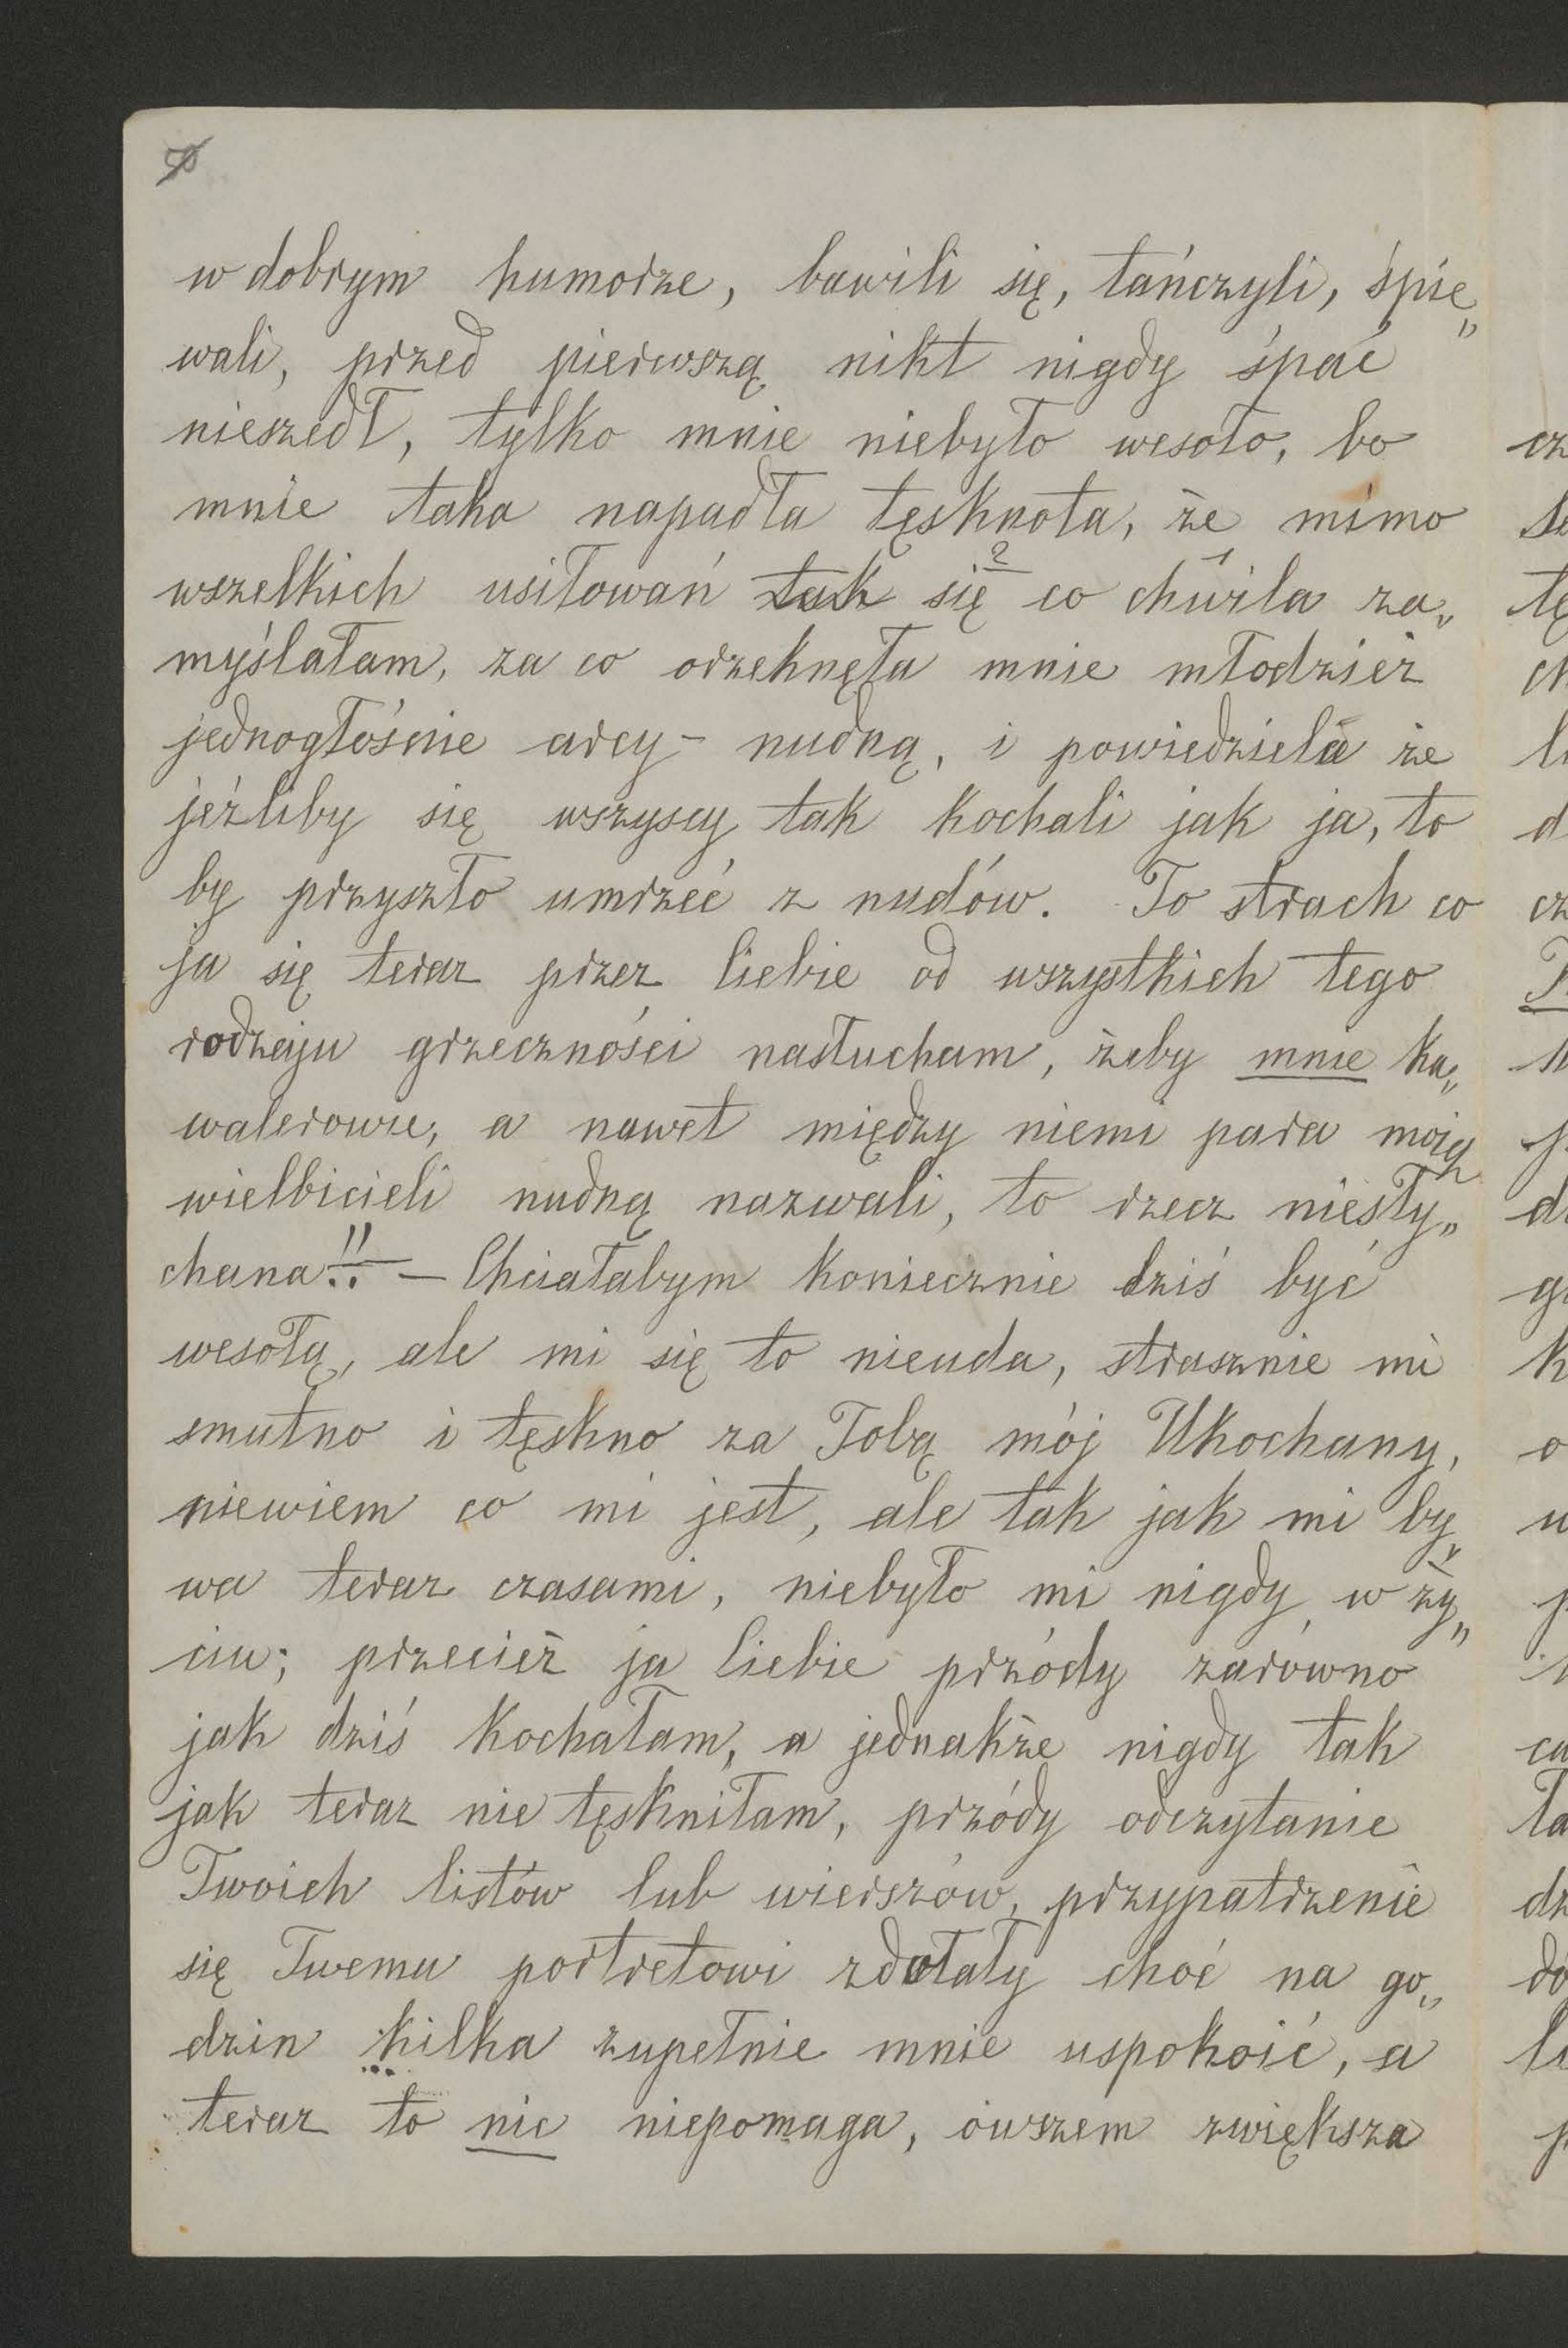 w dobrym humorze, bawili się, tańczyli, śpie„
wali, przed pierwszą nikt nigdy śpać
nieszedł, tylko mnie niebyło wesoło, bo
mnie taka napadła tęsknota, że mimo
wszelkich usiłowań tak się 2 co chwila 1 za„
myślałam, za co orzeknęła mnie młodzież
jednogłośnie arcy- nudną, i powiedziela że
jeźliby się wszyscy tak kochali jak ja, to
by przyszło umrzeć z nudów. To strach co
ja się teraz przez Ciebie od wszystkich tego
rodzaju grzeczności nasłucham, żeby mnie ka„
walerowie, a nawet między niemi para moich
wielbicieli nudną nazwali, to rzecz niesły„
chana!! — Chciałabym koniecznie dziś być
wesołą, ale mi się to nieuda, strasznie mi
smutno i tęskno za Tobą mój Ukochany,
niewiem co mi jest, ale tak jak mi by„
wa teraz czasami, niebyło mi nigdy w ży„
ciu; przecież ja Ciebie przódy zarówno
jak dziś kochałam, a jednakże nigdy tak
jak teraz nie tęskniłam, przódy odczytanie
Twoich listów lub wierszów, przypatrzenie
się Twemu portretowi zdołały choć na go„
dzin kilka zupełnie mnie uspokoić, a
teraz to nic niepomaga, owszem zwiększa